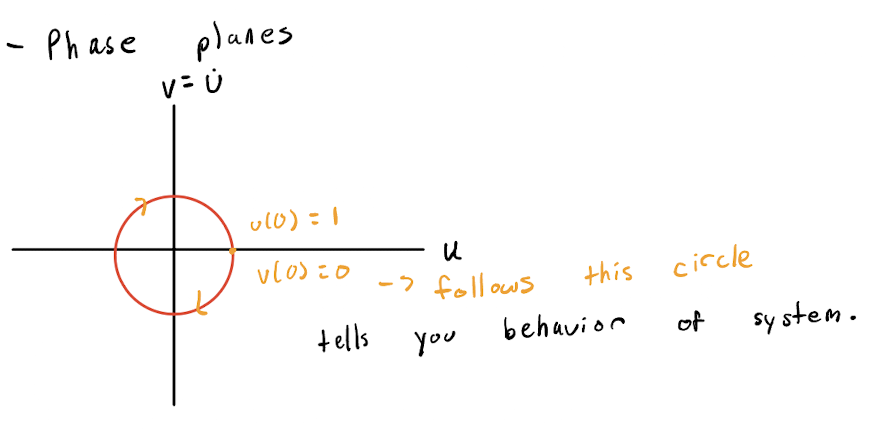 - Phase planes
v = u̇
u(0) = 1
u
v(0) = 0 -> follows this circle
tells you behavior of system.